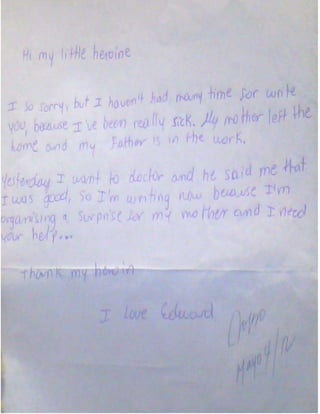 Hi my little heroine
I so sorry, but I haven't had many time for write
you, because I've been really sick. My mother left the
home and my Father is in the work.
Yesterday I want to doctor and he said me that
I was good, so I'm writing now because I'm
organising a surprise for my mother and I need
your help...
Thank my heroin
I Love Edward